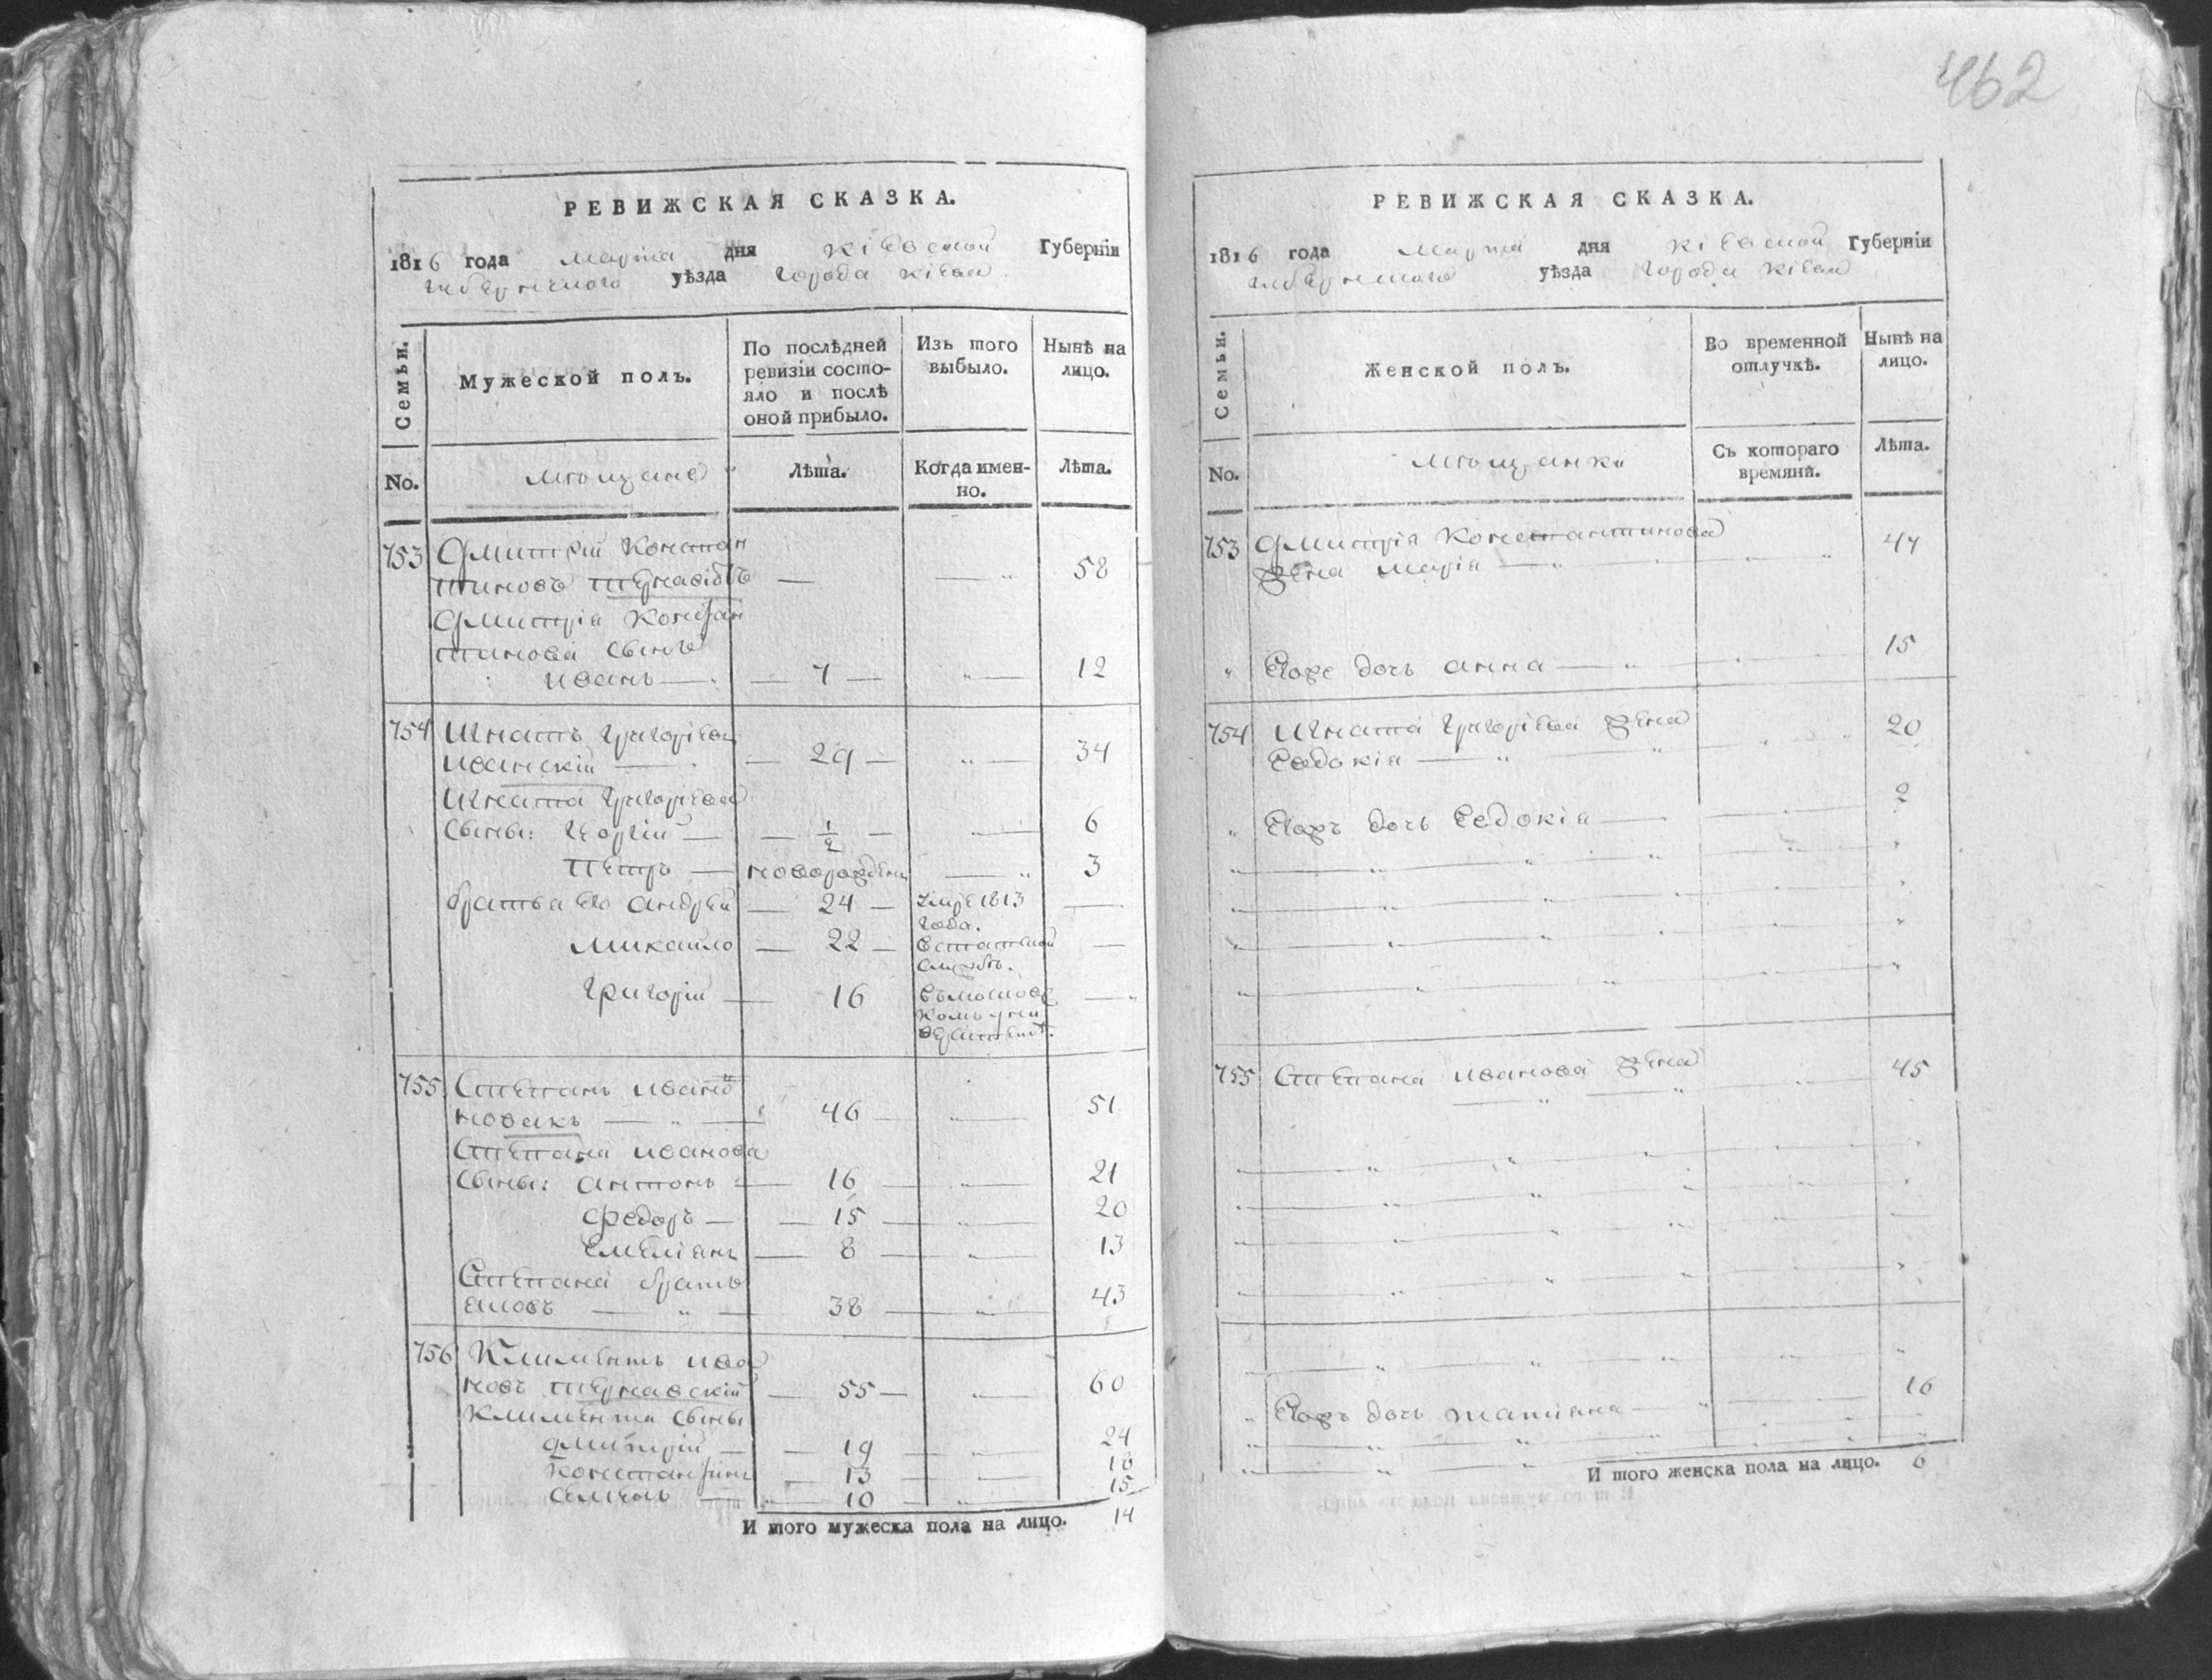 462
РЕВИЖСКАЯ СКАЗКА.
1816 года марта дня Кіевской Губерніи
губернского уѣзда города Кіева
Семьи.
Мужеской полъ.
По послѣдней ревизіи состо-
яло и послѣ
оной прибыло.
Изъ того
выбыло.
Нынѣ на
лицо.
No.
мѣщане
Лѣта.
Когда имен-
но.
Лѣта.
753 Дмитрій Констан
тиновъ 58
Дмитрія Констан
тинова сынъ
иванъ 7 12
754 Игнатъ Григоріевъ
иванскій 29 34
Игната Григоріева
сыны: Георгій 1/2 6
Петръ новорожден 3
братья его андрей 24 умре 1813
года.
Михайло 22 в статской
службѣ.
Григорій 16
755 Степанъ иванов
новакъ 46 51
Степана иванова
сыны: антонъ 16 21
Федоръ 15 20
Емеліянъ 8 13
Степана братъ
38 43
756 Климентъ ива
новъ тернавскій 55 60
Климента сыны
дмитрій 19 24
Константинъ 13 18
Семенъ 10 15
И того мужеска пола на лицо. 14
РЕВИЖСКАЯ СКАЗКА.
1816 года марта дня Кіевской Губерніи
губернского уѣзда города Кіева
Семьи.
Женской полъ.
Во временной
отлучкѣ.
Нынѣ на
лицо.
No.
мѣщанки
Съ котораго
времяни.
Лѣта.
753 Дмитрія Константинова
жена марія 47
Его же дочь анна 15
754 Игната Григоріева жена
Евдокія 20
Егожъ дочь Евдокія 2
755 Степана иванова жена 45
Егожъ дочь татіяна 16
И того женска пола на лицо. 6